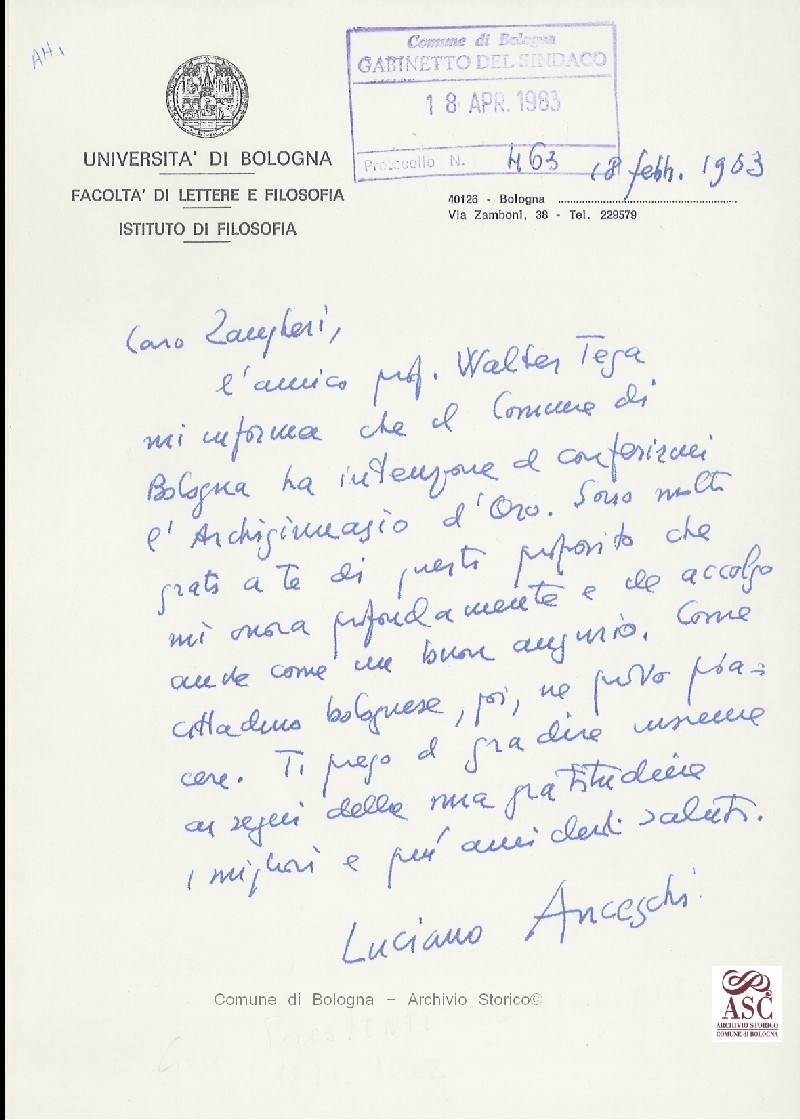 AH,
Comune di Bologna
GABINETTO DEL SINDACO
18 APR. 1983
Protocollo N. 463
UNIVERSITA' DI BOLOGNA
FACOLTA' DI LETTERE E FILOSOFIA
ISTITUTO DI FILOSOFIA
18 febb. 1983
40126 - Bologna
Via Zamboni, 38 - Tel. 229579
Caro Zangheri,
l'amico prof. Walter Tega
mi informa che il Comune di
Bologna ha intenzione di conferirmi
l'Archiginnasio d'Oro. Sono molto
grato a te di questo proposito che
mi onora profondamente e che accolgo
anche come un buon augurio. Come
cittadino bolognese, poi, ne provo pia=
cere. Ti prego di gradire insieme
ai segni della mia gratitudine
i migliori e più amichevoli saluti.
Luciano Anceschi
Comune di Bologna – Archivio Storico©
ASC
ARCHIVIO STORICO
COMUNE di BOLOGNA